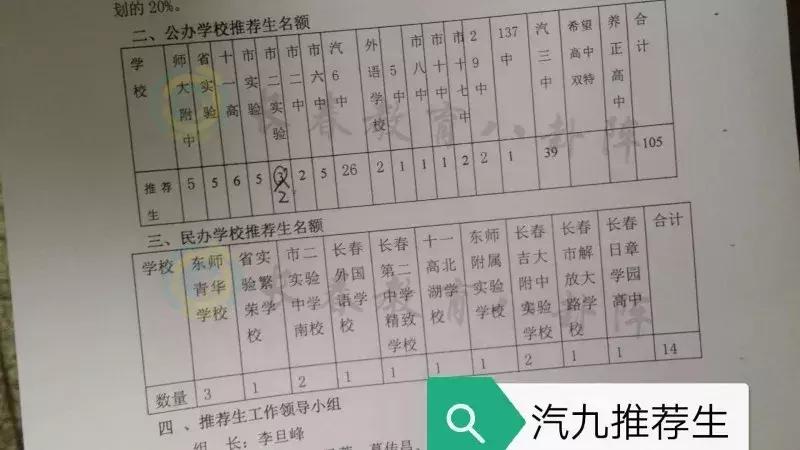 划的 20%。
二、公办学校推荐生名额
学校 师大附中 省实验 十一高 市实验 市二实验 市二中 市六中 汽6中 外语学校 5中 市八中 市十中 市十七中 29中 137中 汽三中 希望高中双特 养正高中 合计
推荐生 5 5 6 5 2 2 5 26 2 1 1 1 2 2 1 39 105
三、民办学校推荐生名额
学校 东师青华学校 省实验繁荣学校 市二实验中学南校 长春外国语学校 长春第二中学精致学校 十一高北湖学校 东师附属实验学校 长春吉大附中实验学校 长春市解放大路学校 长春日章学园高中 合计
数量 3 1 2 1 1 1 1 2 1 1 14
四、推荐生工作领导小组
组 长：李旦峰
长春教育八卦阵
长春教育八卦阵
汽九推荐生